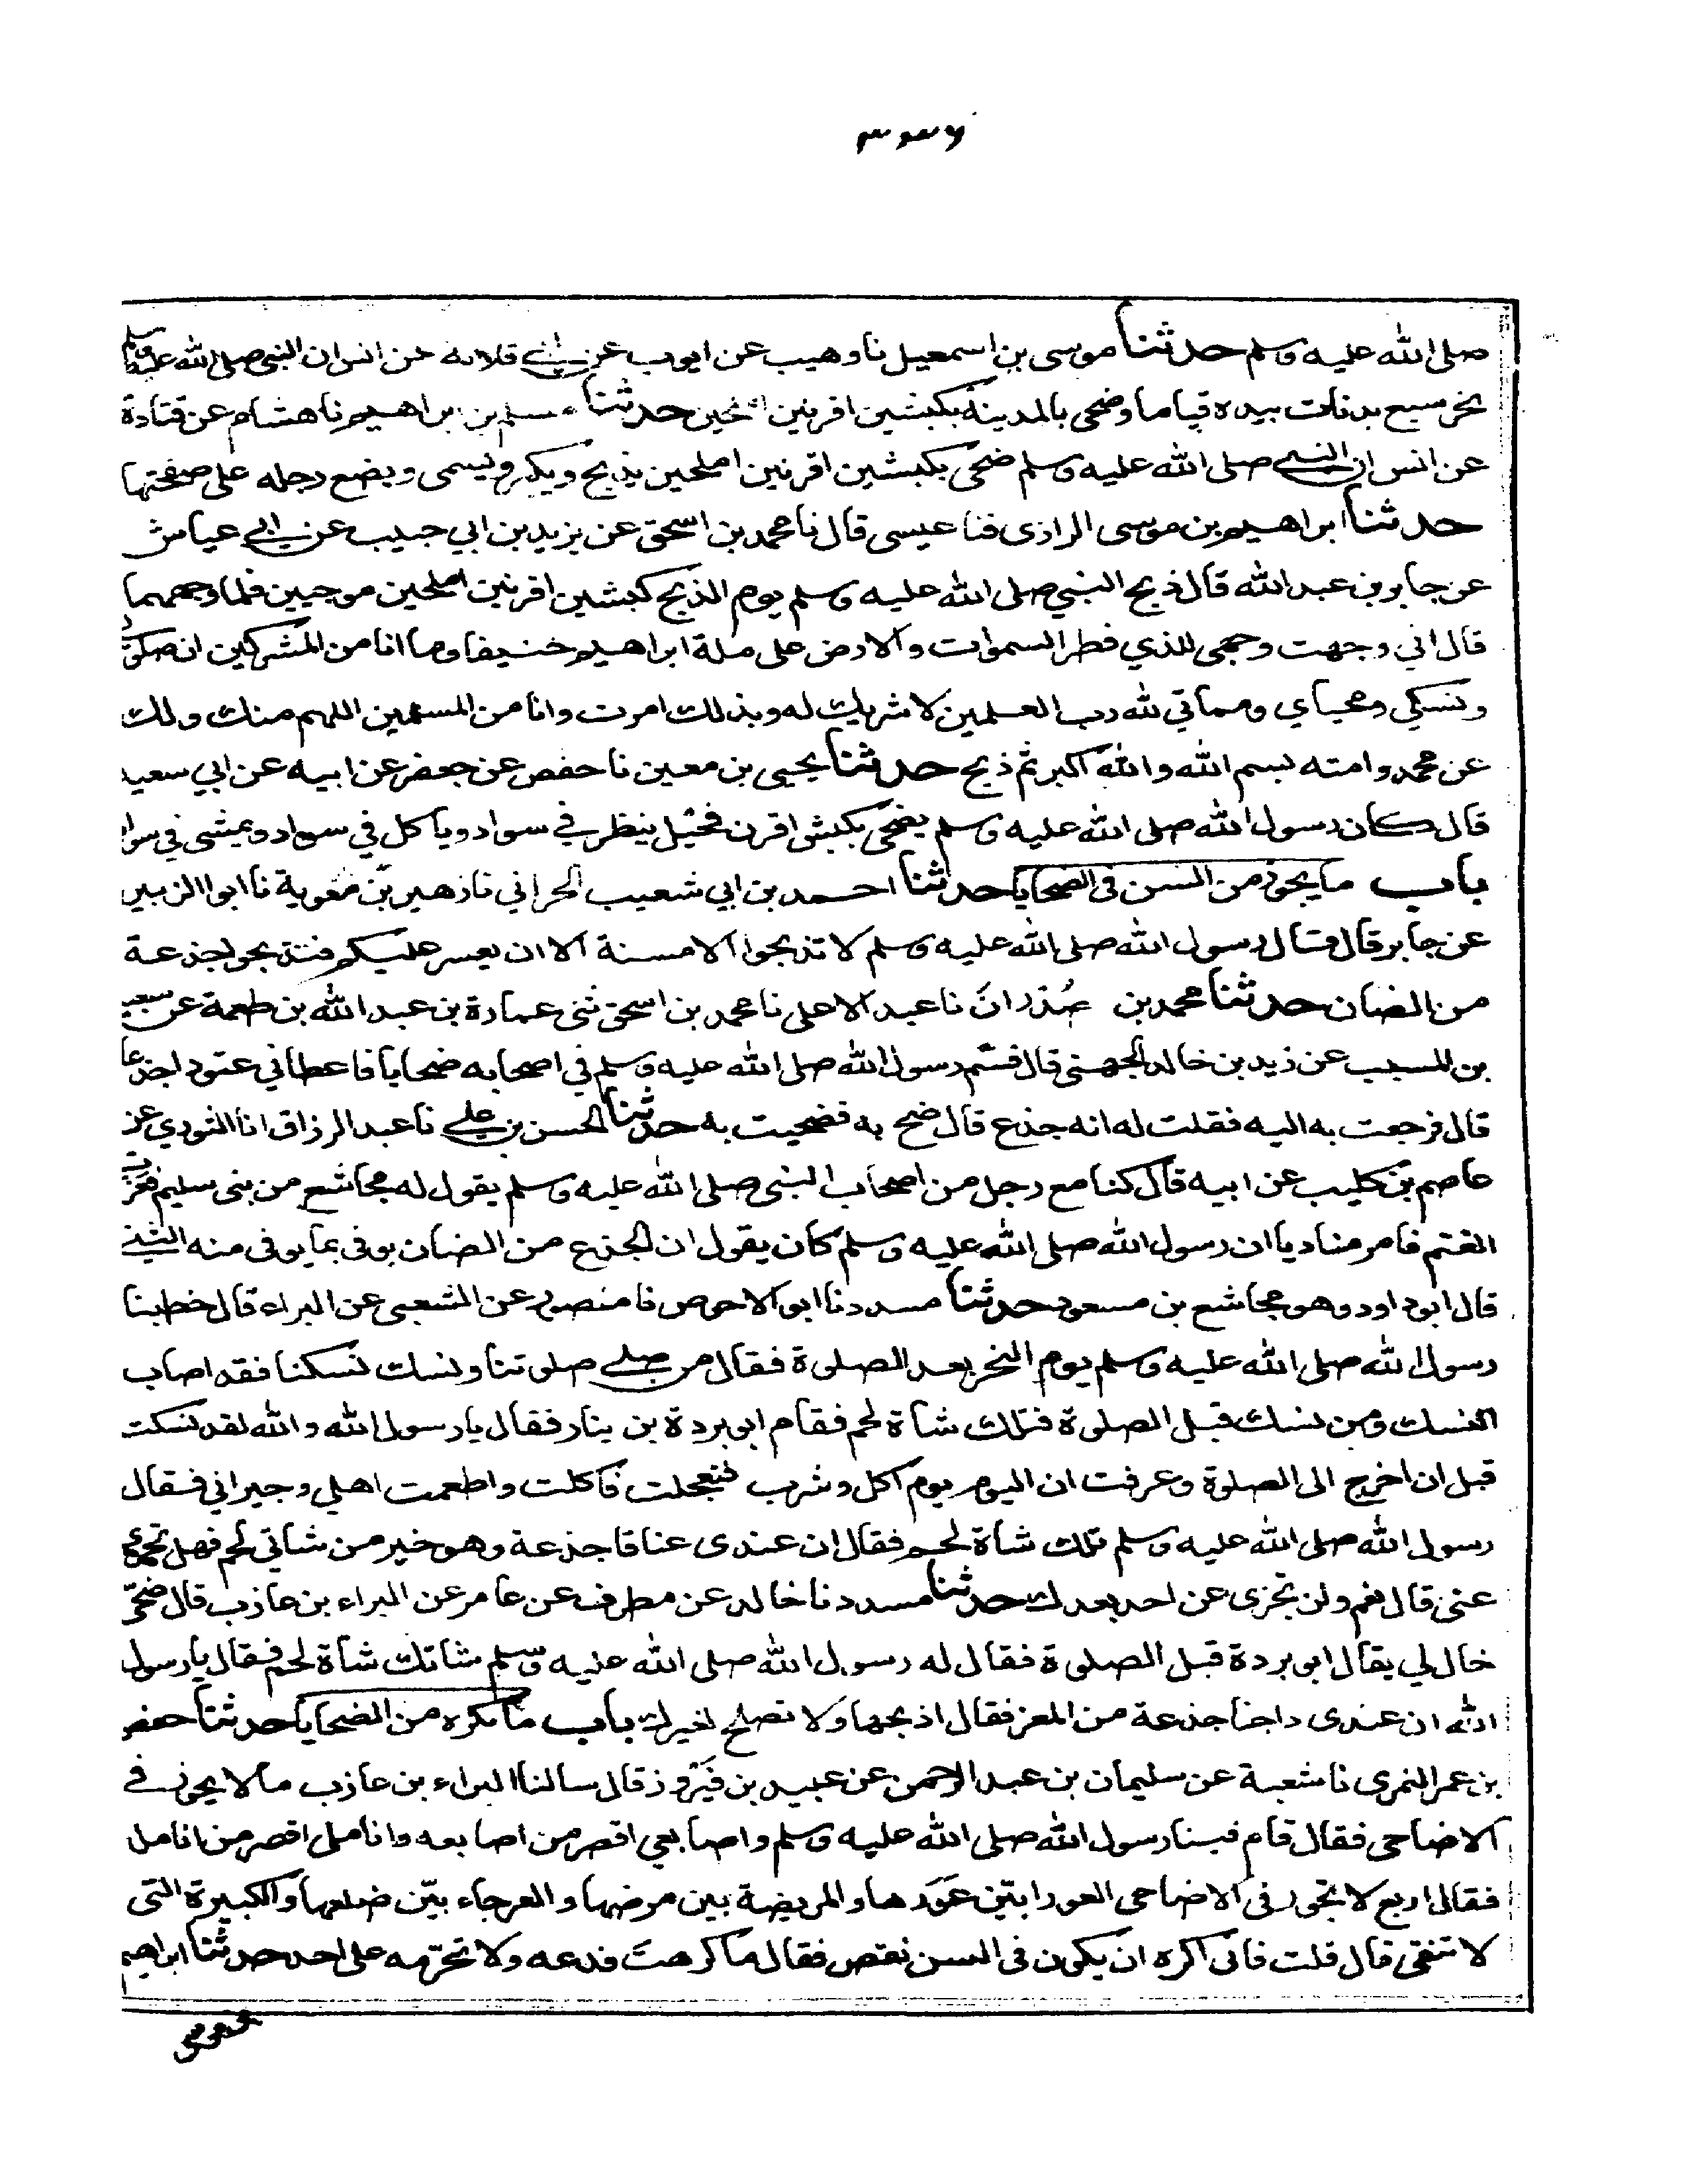 ٣٣٦
صلى الله عليه وسلم حدثنا موسى بن اسمعيل نا وهيب عن ايوب عن ابي قلابة عن انس ان النبي صلى الله عليه وسلم
نحر سبع بدنات بيده قياما وضحى بالمدينة بكبشين اقرنين املحين حدثنا مسلم بن ابراهيم نا هشام عن قتادة
عن انس ان النبي صلى الله عليه وسلم ضحى بكبشين اقرنين املحين يذبح ويكبر ويسمى ويضع رجله على صفحتها
حدثنا ابراهيم بن موسى الرازى قنا عيسى قال نا محمد بن اسحق عن يزيد بن ابي حبيب عن ابي عياش
عن جابر بن عبد الله قال ذبح النبي صلى الله عليه وسلم يوم الذبح كبشين اقرنين املحين موجيين فلما وجههما
قال اني وجهت وجهى للذي فطر السموات والارض على ملة ابراهيم حنيفا وما انا من المشركين ان صلوتي
ونسكي ومحياي ومماتي لله رب العلمين لا شريك له وبذلك امرت وانا من المسلمين اللهم منك ولك
عن محمد وامته بسم الله والله اكبر ثم ذبح حدثنا يحيى بن معين نا حفص عن جعفر عن ابيه عن ابي سعيد
قال كان رسول الله صلى الله عليه وسلم يضحى بكبش اقرن فحيل ينظر في سواد وياكل في سواد ويمشى في سواد
باب ما يجوز من السن فى الضحايا حدثنا احمد بن ابي شعيب الحراني نا زهير بن معوية نا ابوا الزبير
عن جابر قال قال رسول الله صلى الله عليه وسلم لا تذبحوا الا مسنة الا ان يعسر عليكم فتذبحوا جذعة
من الضان حدثنا محمد بن صُدران نا عبد الاعلى نا محمد بن اسحق ثنى عمارة بن عبد الله بن طعمة عن سعيد
بن المسيب عن زيد بن خالد الجهنى قال قسم رسول الله صلى الله عليه وسلم في اصحابه ضحايا فاعطاني عتودا جذعا
قال فرجعت به اليه فقلت له انه جذع قال ضح به فضحيت به حدثنا الحسن بن علي نا عبد الرزاق انا الثوري عن
عاصم بن كليب عن ابيه قال كنا مع رجل من اصحاب النبى صلى الله عليه وسلم يقول له مجاشع من بنى سليم فعزت
الغنم فامر مناديا ان رسول الله صلى الله عليه وسلم كان يقول ان الجذع من الضان يوفى بما يوفى منه الثني
قال ابو داود وهو مجاشع بن مسعود حدثنا مسدد نا ابو الاحوص نا منصور عن الشعبى عن البراء قال خطبنا
رسول الله صلى الله عليه وسلم يوم النحر بعد الصلوة فقال من صلى صلوتنا ونسك نسكنا فقد اصاب
النسك ومن نسك قبل الصلوة فتلك شاة لحم فقام ابو بردة بن ينار فقال يا رسول الله والله لقد نسكت
قبل ان اخرج الى الصلوة وعرفت ان اليوم يوم اكل وشرب فتعجلت فاكلت واطعمت اهلي وجيراني فقال
رسول الله صلى الله عليه وسلم تلك شاة لحم فقال ان عندى عناقا جذعة وهو خير من شاتي لحم فهل تجزئ
عنى قال نعم ولن تجزى عن احد بعدك حدثنا مسدد نا خالد عن مطرف عن عامر عن البراء بن عازب قال ضحّى
خال لي يقال ابو بردة قبل الصلوة فقال له رسول الله صلى الله عليه وسلم شاتك شاة لحم فقال يا رسول
الله ان عندى داجنا جذعة من المعز فقال اذبحها ولا تصلح لغيرك باب ما يكره من الضحايا حدثنا حفص
بن عمر النمرى نا شعبة عن سليمان بن عبد الرحمن عن عبيد بن فيروز قال سالنا البراء بن عازب ما لا يجوز في
الاضاحى فقال قام فينا رسول الله صلى الله عليه وسلم واصابعي اقصر من اصابعه وانامل اقصر من انامل
فقال اربع لا تجوز فى الاضاحى العورا بيّن عورها والمريضة بين مرضها والعرجاء بيّن ضلعها والكبيرة التى
لا تنقى قال قلت فانى اكره ان يكون فى السن نقص فقال ما كرهت فدعه ولا تحرّمه على احد حدثنا ابراهيم